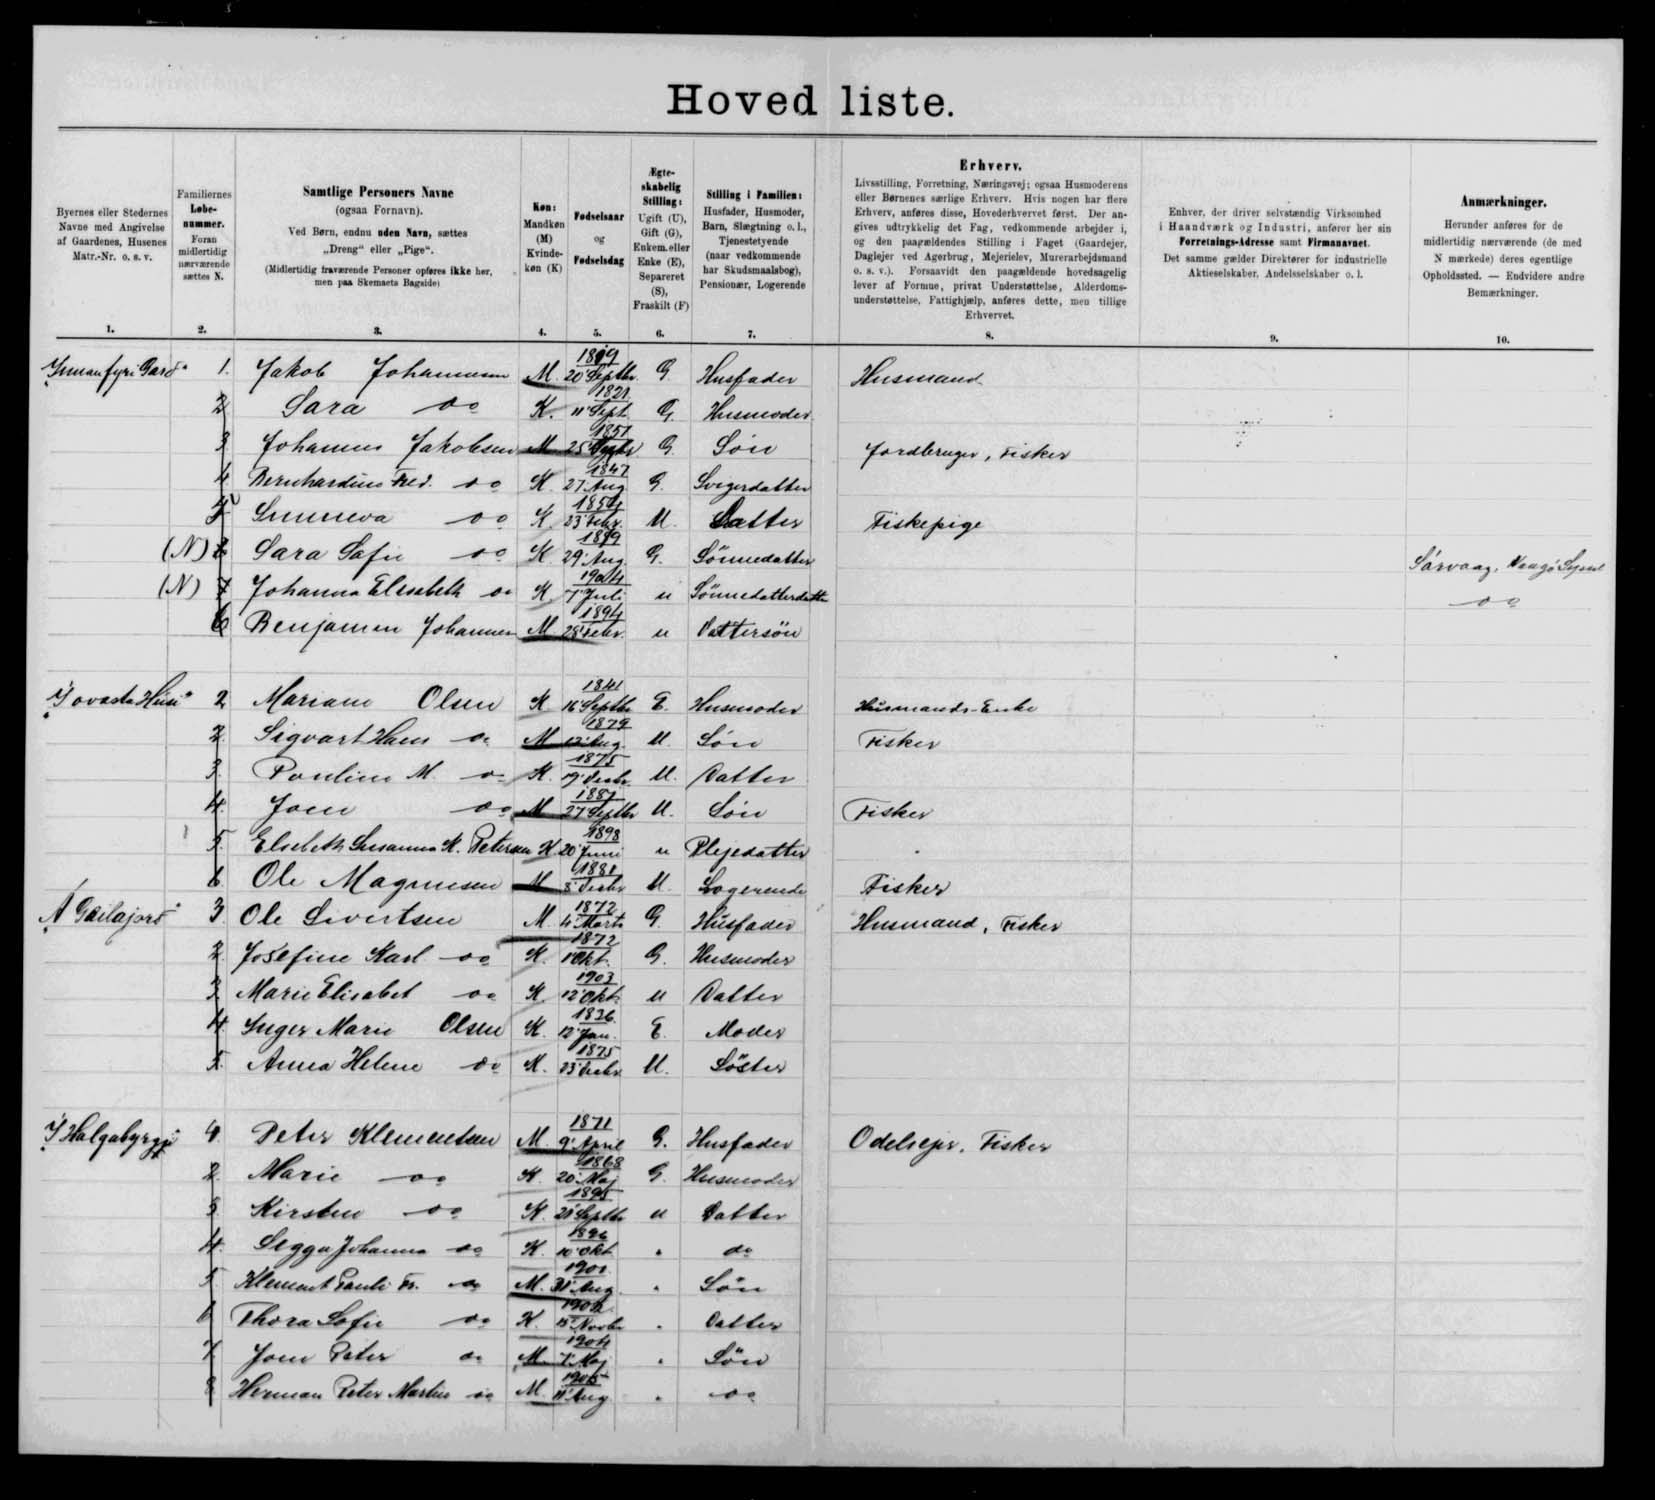 Hoved liste.
Byernes eller Stedernes Navne med Angivelse af Gaardenes, Husenes Matr.-Nr. o. s. v.
Familiernes Løbe-nummer. Foran midlertidig nærværende sættes N.
Samtlige Personers Navne
(ogsaa Fornavn).
Ved Børn, endnu uden Navn, sættes
„Dreng“ eller „Pige“.
(Midlertidig fraværende Personer opføres ikke her,
men paa Skemaets Bagside)
Køn: Mandkøn (M) Kvinde-køn (K)
Fødselsaar og Fødselsdag
Ægte-skabelig Stilling: Ugift (U), Gift (G), Enkem. eller Enke (E), Separeret (S), Fraskilt (F)
Stilling i Familien: Husfader, Husmoder, Barn, Slægtning o. l., Tjenestetyende (naar vedkommende har Skudsmaalsbog), Pensionær, Logerende
Erhverv.
Livsstilling, Forretning, Næringsvej; ogsaa Husmoderens
eller Børnenes særlige Erhverv. Hvis nogen har flere
Erhverv, anføres disse, Hovederhvervet først. Der an-
gives udtrykkelig det Fag, vedkommende arbejder i,
og den paagældendes Stilling i Faget (Gaardejer,
Daglejer ved Agerbrug, Mejerielev, Murerarbejdsmand
o. s. v.). Forsaavidt den paagældende hovedsagelig
lever af Formue, privat Understøttelse, Alderdoms-
understøttelse, Fattighjælp, anføres dette, men tillige
Erhvervet.
Enhver, der driver selvstændig Virksomhed
i Haandværk og Industri, anfører her sin
Forretnings-Adresse samt Firmanavnet.
Det samme gælder Direktører for industrielle
Aktieselskaber, Andelsselskaber o. l.
Anmærkninger.
Herunder anføres for de
midlertidig nærværende (de med
N mærkede) deres egentlige
Opholdssted. — Endvidere andre
Bemærkninger.
1. 2. 3. 4. 5. 6. 7. 8. 9. 10.
1. Jakob Johannesen M. 20 Septbr. G. Husfader Husmand
2 Sara do K. 1821 11 Sept. G. Husmoder
3 Johannes Jakobsen M 1851 25 G. Søn Jordbruger, Fisker
4 Fred. do K. 1847 27 Aug G. Svigerdatter
5 Sunneva do K. 23 Febr. U. Datter Fiskepige
(N) Sara Sofie do K 29 Aug. G. Sönnedatter Sörvaag, Vaagö Syssel
(N) 7 Johanna Elisabeth do K. 1904 7 Juli u Sönnedatterdatter do
Benjamin Johannesen M 1894 28 Febr. u Dattersön
2 Mariane Olsen K 1841 16 Septbr E. Husmoder Husmands-Enke
2. Sigvart Hans do M 1879 12 Aug. U. Sön Fisker
3. Pouline M. do K. 1875 19 Decbr. U. Datter
4. Joen do M 27 Septbr U. Søn Fisker
5. Elsebeth Susanna K. Petersen K 1898 20 Juni u Plejedatter
6 Ole Magnusen M 1881 8 Decbr U. Logerende Fisker
3 Ole Sivertsen M. 1872 4 Marts G. Husfader Husmand, Fisker
2. Josefine Karl. do K. 1872 1 Okt. G. Husmoder
3. Marie Elisabet do K 1903 12 Okt. u Datter
4. Inger Marie Olsen K. 1836 12 Jan. E. Moder
5. Anna Helene do K. 1875 23 Decbr U. Söster
Í Halgabyrgji 4. Peter Klementsen M. 1871 9 April G. Husfader Odelsejer, Fisker
2. Marie do K. 1868 20 Maj G. Husmoder
3. Kirsten do K. 1895 21 Septbr u Datter
4. Sigga Johanna do K. 1896 10 Okt. " do
5. Klement Pauli Fr. do M. 31 Aug. " Sön
6 Thora Sofie do K. 15 Novbr " Datter
7. Joen Peter do M 1904 7 Maj " Sön
8 Herman Peter Martin do M. 1905 11 Aug " do